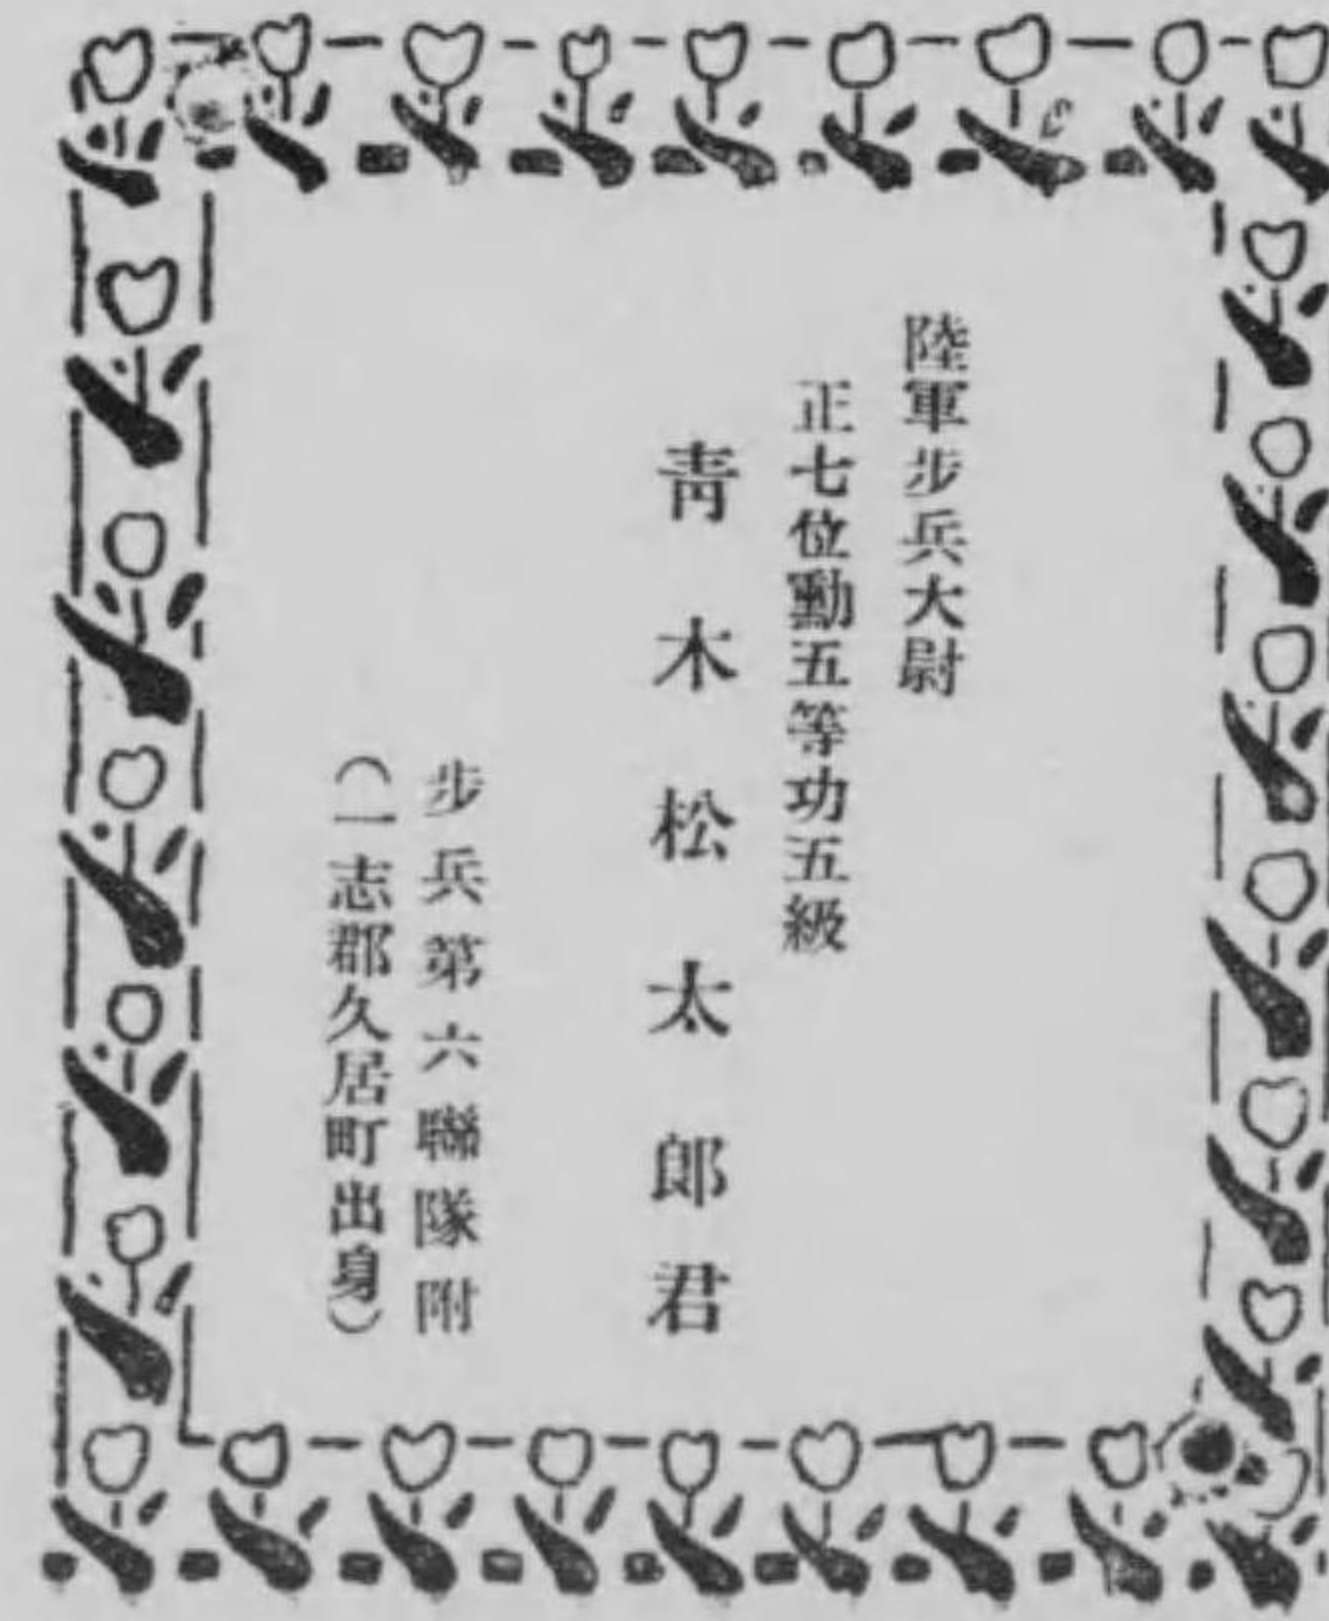 陸軍步兵大尉
正七位勳五等功五級
靑木松太郎君
步兵第六聯隊附
（一志郡久居町出身）